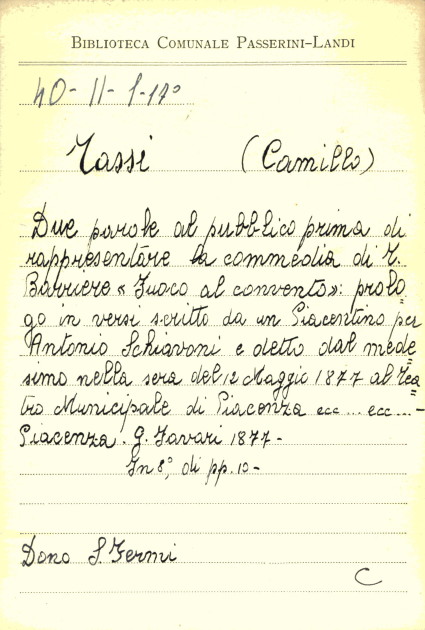 BIBLIOTECA COMUNALE PASSERINI-LANDI
40-II-f-17°
Tassi (Camillo)
Due parole al pubblico prima di
rappresentare la commedia di T.
Barriere « Fuoco al convento»: prolo=
go in versi scritto da un Piacentino per
Antonio Schiavoni e detto dal mede=
simo nella sera del 12 Maggio 1877 al Tea=
tro Municipale di Piacenza ecc... ecc...-
Piacenza. G. Tavari 1877-
In 8°, di pp. 10-
Dono S. Fermi
C